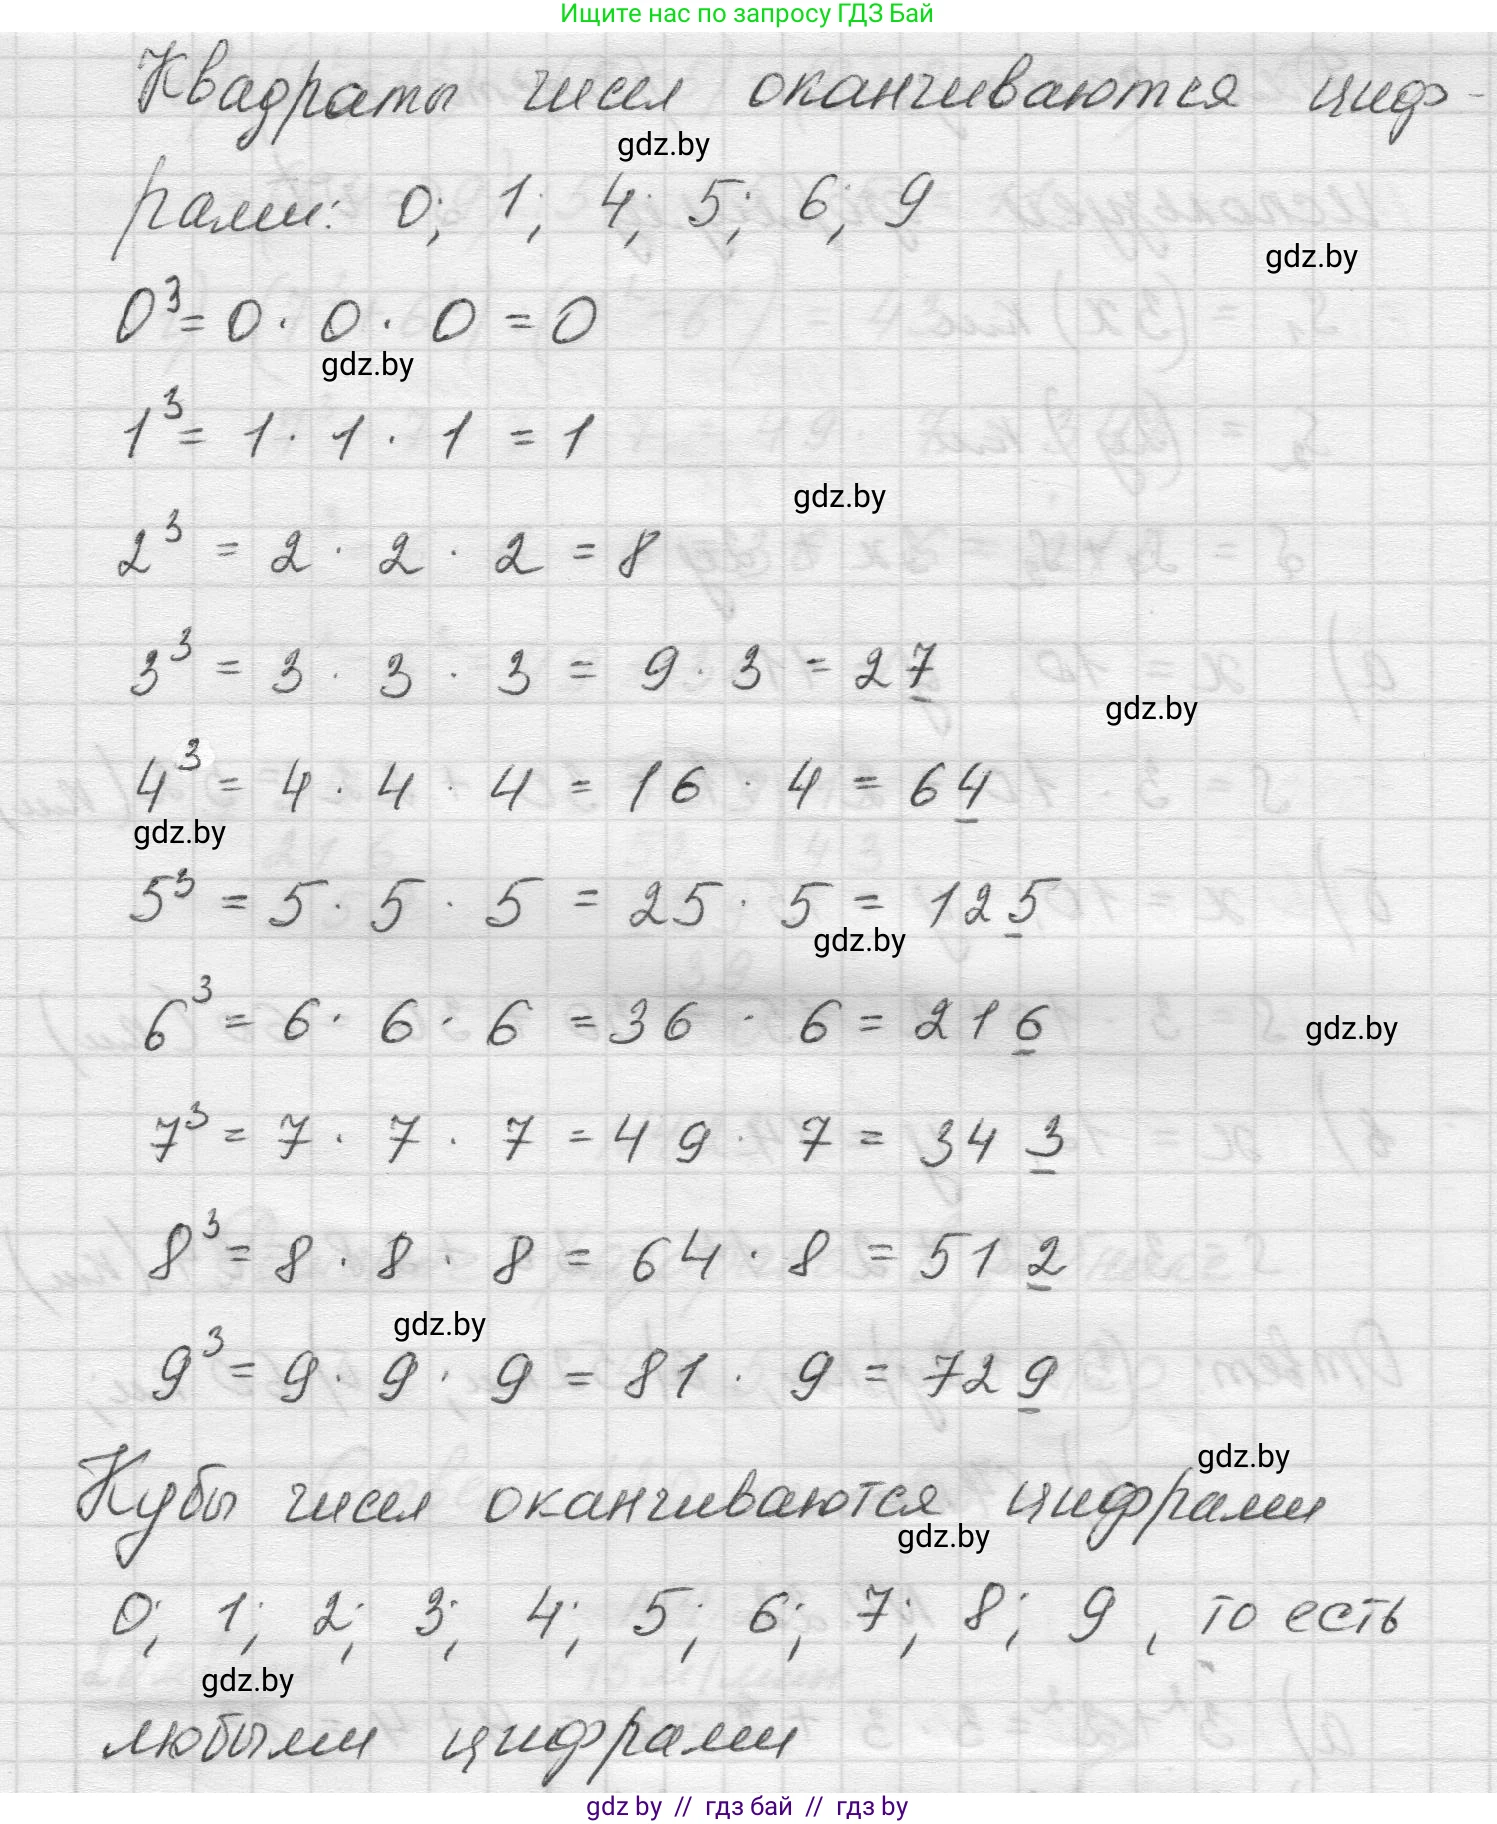 Ищите нас по запросу ГДЗ Бай
Квадраты чисел оканчиваются циф-
gdz.by
рами: 0; 1; 4; 5; 6; 9
gdz.by
0³ = 0 · 0 · 0 = 0
gdz.by
1³ = 1 · 1 · 1 = 1
gdz.by
2³ = 2 · 2 · 2 = 8
3³ = 3 · 3 · 3 = 9 · 3 = 27
gdz.by
4³ = 4 · 4 · 4 = 16 · 4 = 64
gdz.by
5³ = 5 · 5 · 5 = 25 · 5 = 125
gdz.by
6³ = 6 · 6 · 6 = 36 · 6 = 216
gdz.by
7³ = 7 · 7 · 7 = 49 · 7 = 343
8³ = 8 · 8 · 8 = 64 · 8 = 512
gdz.by
9³ = 9 · 9 · 9 = 81 · 9 = 729
gdz.by
Кубы чисел оканчиваются цифрами
gdz.by
0; 1; 2; 3; 4; 5; 6; 7; 8; 9, то есть
gdz.by
любыми цифрами
gdz by // гдз бай // гдз by